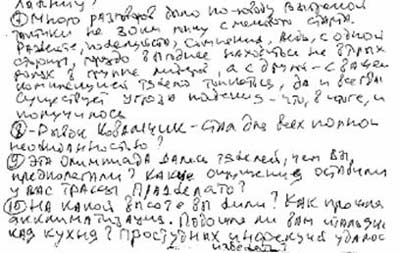 ⑦ Много разговоров было по-поводу выбранной
тактики не зони пику с самого старта.
Развейте, пожалуйста, сомнения, ведь, с одной
стороны, трудно выгоднее находиться не в первых
рядах в группе лидеров, а с другой - с вашей
комплекцией тяжело тянуться, да и всегда
существует угроза падения - что, в итоге, и
получилось
⑧ - Рывок Ковальчик - стал для всех полной
неожиданностью?
⑨ Эта олимпиада далась тяжелей, чем вы
предполагали? Какие ощущения оставили
у вас трассы Прадже­лато?
⑩ На какой высоте вы жили? Как прошла
акклиматизация. Подошла ли вам итальянс
кая кухня? Простудных инфекций удалось
избежать?